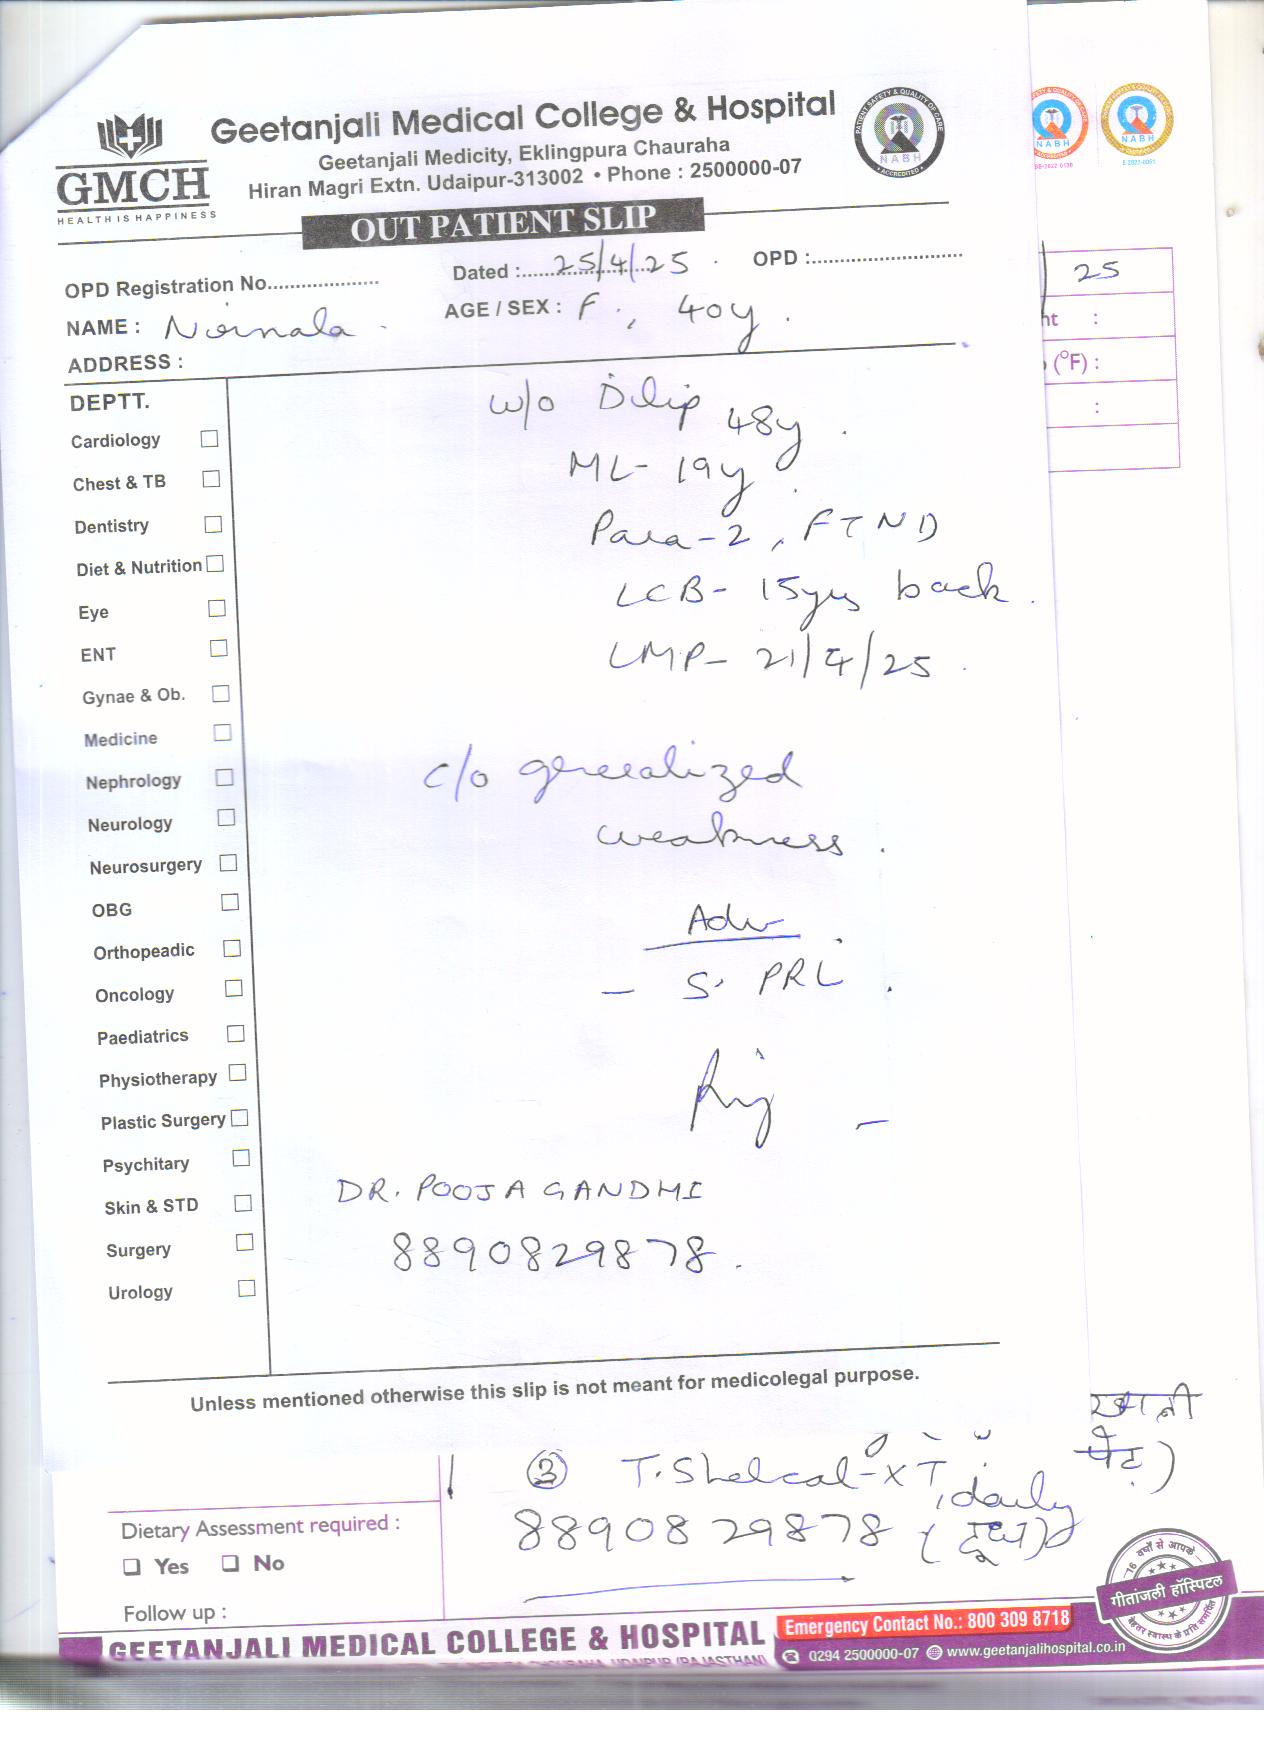 Geetanjali Medical College & Hospital
Geetanjali Medicity, Eklingpura Chauraha
Hiran Magri Extn. Udaipur-313002 • Phone : 2500000-07
GMCH
HEALTH IS HAPPINESS
PATIENT SAFETY & QUALITY OF CARE
NABH
ACCREDITED
NABH
NABH
OUT PATIENT SLIP
OPD Registration No....................
Dated :......25/4/25
OPD :..........................
NAME : Nirmala
AGE / SEX : F, 40y
ADDRESS :
25
nt :
(°F) :
:
DEPTT.
Cardiology
Chest & TB
Dentistry
Diet & Nutrition
Eye
ENT
Gynae & Ob.
Medicine
Nephrology
Neurology
Neurosurgery
OBG
Orthopeadic
Oncology
Paediatrics
Physiotherapy
Plastic Surgery
Psychitary
Skin & STD
Surgery
Urology
w/o Dilip 48y.
ML- 19y
Para-2, FTND
LCB- 15yrs back.
LMP- 21/4/25.
c/o generalized
weakness.
Adv
- S. PRL.
DR. POOJA GANDHI
8890829878.
Unless mentioned otherwise this slip is not meant for medicolegal purpose.
खाली
पेट)
③ T. Shelcal-XT, daily
8890829878 (दूध)
Dietary Assessment required :
Yes No
Follow up :
GEETANJALI MEDICAL COLLEGE & HOSPITAL
Emergency Contact No.: 800 309 8718
0294 2500000-07 www.geetanjalihospital.co.in
16 वर्षों से आपके
गीतांजली हॉस्पिटल
बेहतर स्वास्थ के प्रति समर्पित